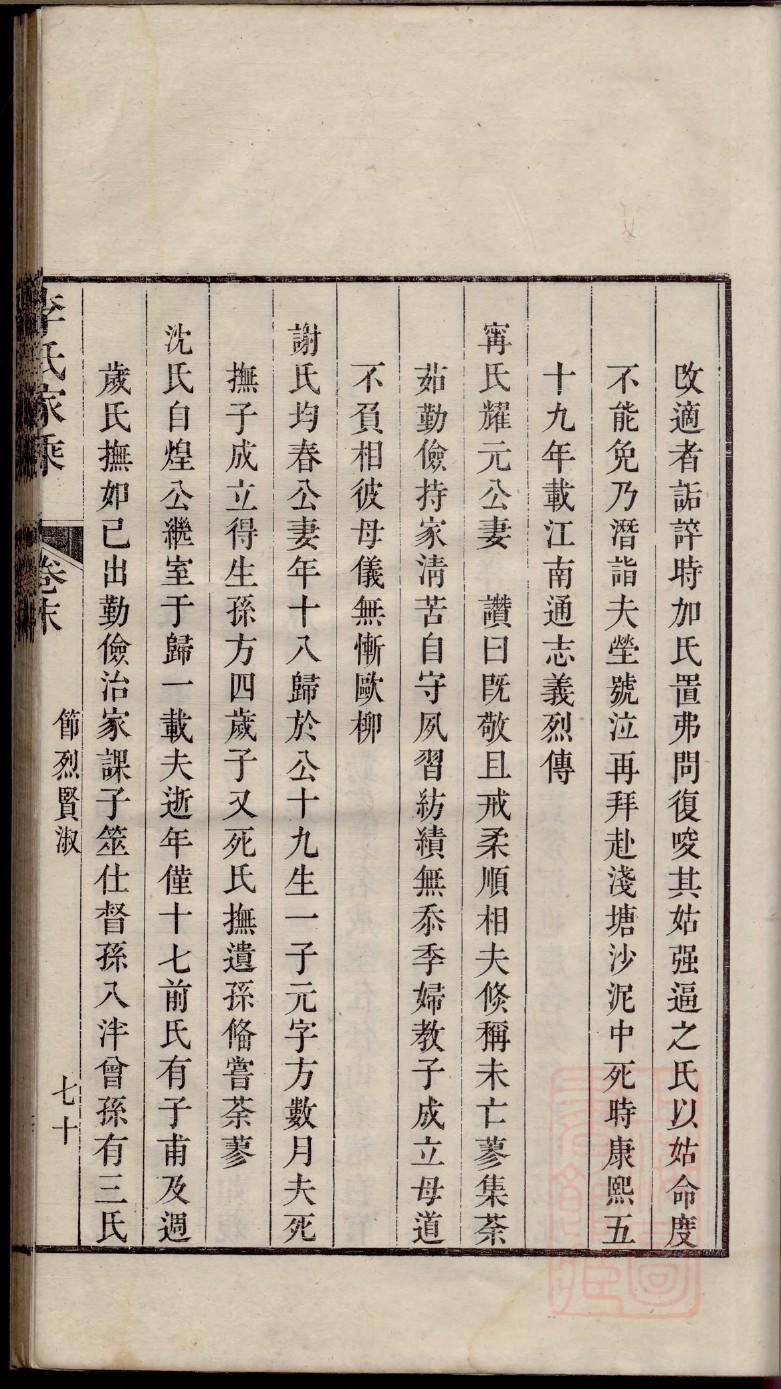 改適者詬誶時加氏置弗問復唆其姑强逼之氏以姑命度
不能免乃潛詣夫塋號泣再拜赴淺塘沙泥中死時康熙五
十九年載江南通志義烈傳
甯氏耀元公妻 讚曰旣敬且戒柔順相夫倏稱未亡蓼集荼
茹勤儉持家淸苦自守夙習紡績無忝季婦教子成立母道
不負相彼母儀無慚歐柳
謝氏均春公妻年十八歸於公十九生一子元字方數月夫死
撫子成立得生孫方四歲子又死氏撫遺孫俻嘗荼蓼
沈氏自煌公繼室于歸一載夫逝年僅十七前氏有子甫及週
歲氏撫如已出勤儉治家課子筮仕督孫入泮曾孫有三氏
李氏家乘 卷末 節烈賢淑 七十